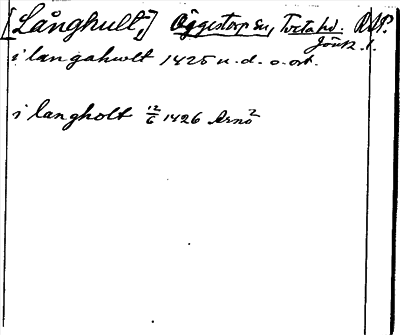 [Långhult,] Öggestorp sn, Tveta hd. RAP.
Jönk. l.
i langahwlt 1425 u. d. o. ort.
i langholt 12/6 1426 Arnö 2